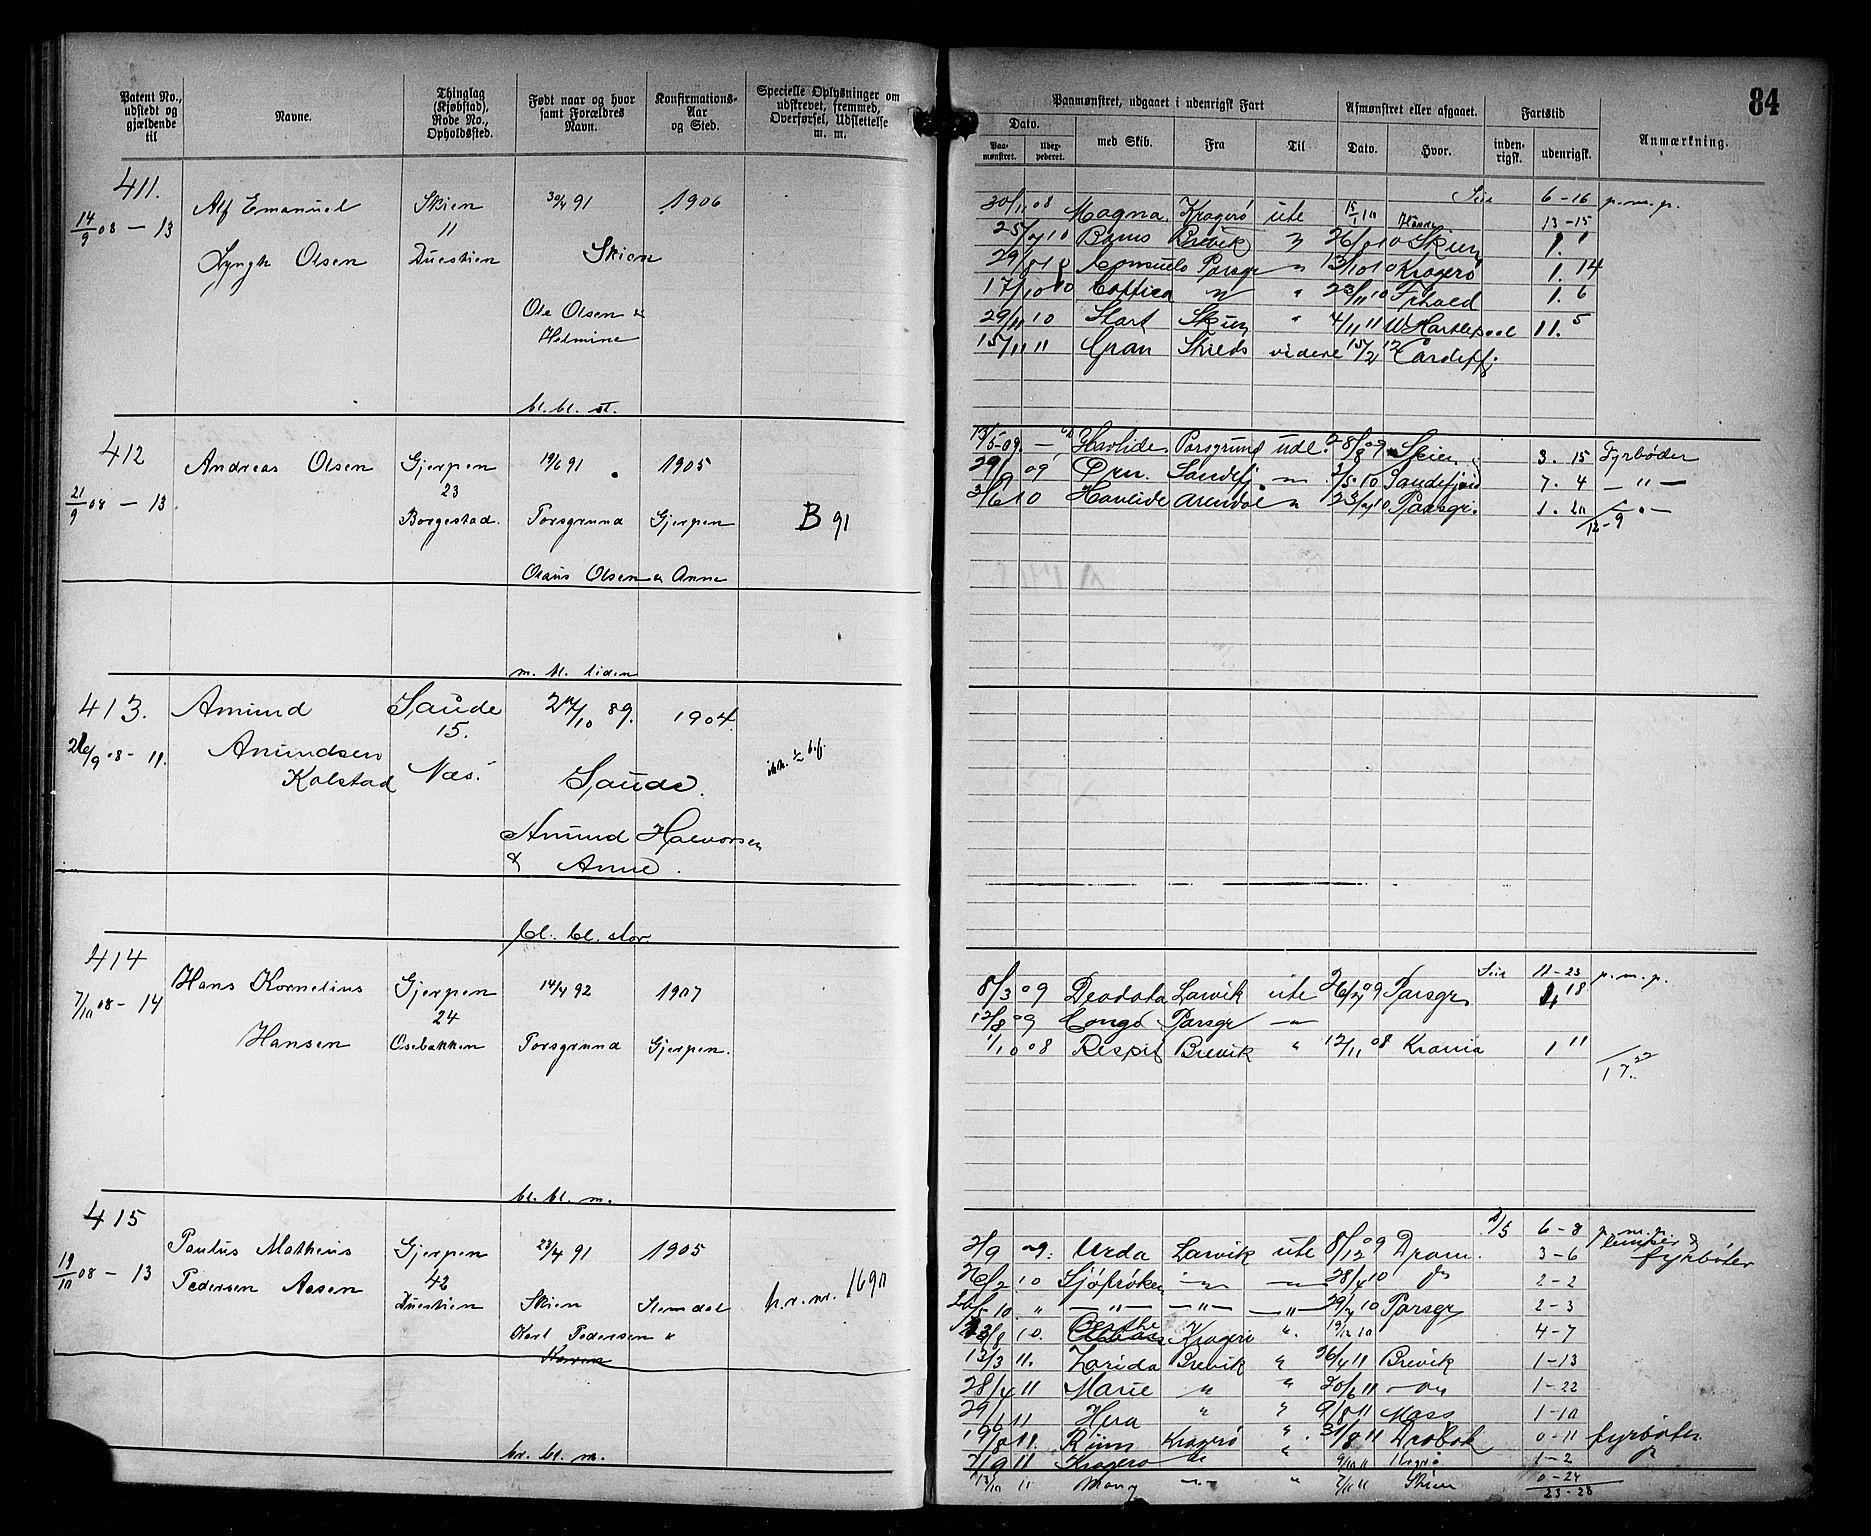 84
Patent No., udstedt og gjældende til
Navne.
Thinglag (Kjøbstad), Rode No., Opholdssted.
Født naar og hvor samt Forældres Navn.
Konfirmations-Aar og Sted.
Specielle Oplysninger om udskrevet, fremmed, Overførsel, Udslettelse m. m.
Paamønstret, udgaaet i udenrigsk Fart
Afmønstret eller afgaaet.
Fartstid
Anmærkning.
Dato.
Paa-mønstret.
med Skib.
Fra
Til
Dato.
Hvor.
inden-rigsk.
udenrigsk.
411.
14/9 08 - 13
Alf Emanuel
Lyngh Olsen
Skien
11
Duestien
30/4 91
1906
Skien
Ole Olsen &
Helmine
bl. bl. st.
6-16 p.m.p.
30/11 08 Magna Kragerø ute 15/1 10
13-15
Brevik
Skien
Porsgr
Kragerø
1. 14
17/10 10
23/11 10 Frhald 1. 6
29/11 10 Start Skien " 4/11 11 W Hartlepool 11. 5
15/11 11 Gran Shields videre 15/2 12 Cardiff
412
21/9 08 - 13
Andreas Olsen
Gjerpen
23
Borgestad.
19/6 91
1905
Porsgrund
Gjerpen
B 91
Olaus Olsen & Anne
m. bl. liden
13/5-09. Havlide Porsgrund udl. 28/8 09 3. 15 Fyrbøder
29/9 09 Ørn Sandefj. 3/5 10 Sandefjord 7. 4 - " -
3/6 10 Havlide Arendal " 23/7 10 Porsgr. 1. 20 - " -
12-9
413.
26/9 08 - 11.
Amund
Amundsen
Kolstad
Saude
15.
Næs.
2/10 89.
1904.
Saude.
Amund Halvorsen
& Anne.
bl. bl. stor
414
7/10 08 - 14
Hans Kornelius
Hansen
Gjerpen
24
Osebakken
14/4 92
1907
Porsgrund
Gjerpen.
bl. bl. m.
11-23 p.m.p.
8/3 09 Deodata Larvik ute 26/7 09 Porsgr 4 18
12/8 09 Congo Porsgr - " -
1/10 08 Respit Brevik " 12/11 08 Krania 1 11
17. 22
415
19/10 08 - 13
Paulus Matheus
Pedersen Aasen
Gjerpen
42
Duestien
23/4 91
1905
Skien
Slemdal
Karl Pedersen &
Karen
h.r. nr. 1690
br. bl. m.
6-8 p.m.p.
2/9 09. Urda Larvik ute 8/12 09 Dram. 3-6 lemper & fyrbøter
26/2 10 Sjöfröken - " - - " - 28/4 10 do 2-2
10 " - " - - " - - " - 29/7 10 Porsgr 2-3
10. Berthe Kragerø " 19/12 10 4-7
13/3 11. Zarida Brevik " 26/4 11 Brevik 1-13
28/4 11 Marie " " 20/6 11 1-22
29/6 11 Hera " " 9/8 11 Moss 1-10
19/8 11. Rüm Kragerø " 31/8 11 Drøbak 0-11 fyrbøter
7/9 11 Kragerø " " 9/10 11 1-2
13/10 11 - " - " 7/11 11 Skien 0-24
23-28